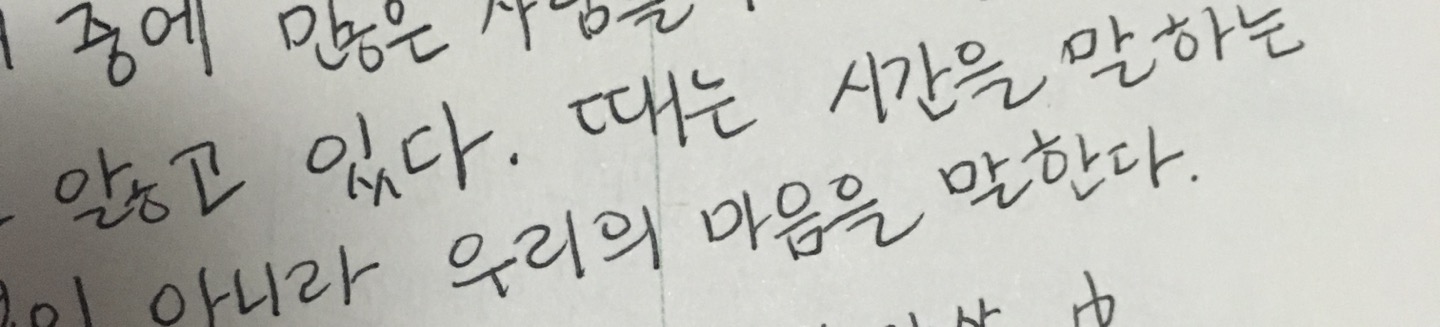 중에 많은 사람을
앓고 있다. 때는 시간을 말하는
이 아니라 우리의 마음을 말한다.